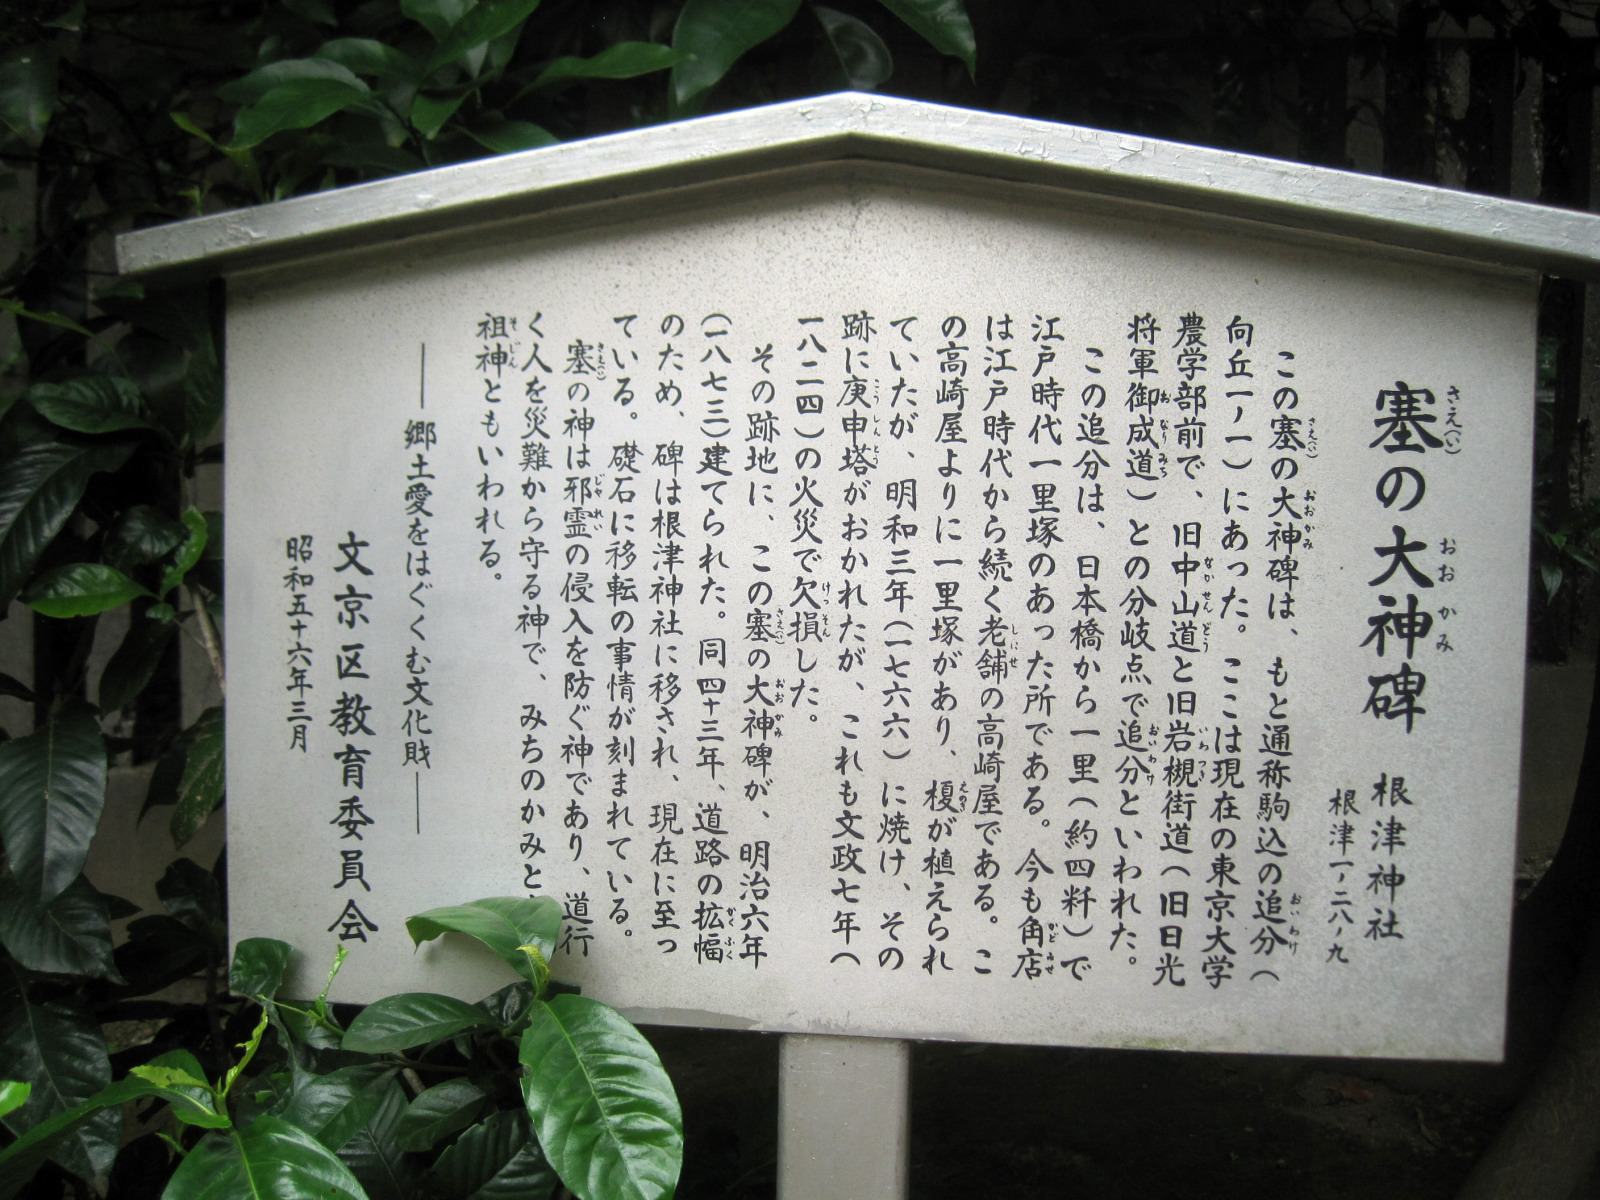 塞の大神碑
根津神社
根津一ノ二八ノ九
この塞の大神碑は、もと通称駒込の追分(
向丘一ノ一)にあった。ここは現在の東京大学
農学部前で、旧中山道と旧岩槻街道(旧日光
将軍御成道)との分岐点で追分といわれた。
この追分は、日本橋から一里(約四粁)で
江戸時代一里塚のあった所である。今も角店
は江戸時代から続く老舗の高崎屋である。こ
の高崎屋よりに一里塚があり、榎が植えられ
ていたが、明和三年(一七六六)に焼け、その
跡に庚申塔がおかれたが、これも文政七年(
一八二四)の火災で欠損した。
その跡地に、この塞の大神碑が、明治六年
(一八七三)建てられた。同四十三年、道路の拡幅
のため、碑は根津神社に移され、現在に至っ
ている。礎石に移転の事情が刻まれている。
塞の神は邪霊の侵入を防ぐ神であり、道行
く人を災難から守る神で、みちのかみと
祖神ともいわれる。
――郷土愛をはぐくむ文化財――
文京区教育委員会
昭和五十六年三月